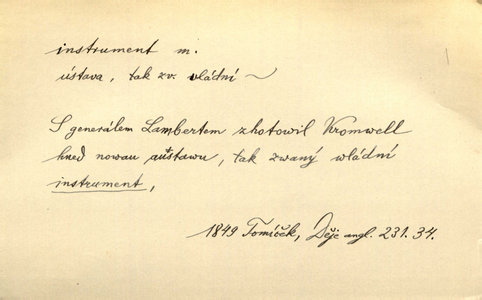 instrument m.
ústava, tak zv. vládní ~
S generálem Lambertem zhotowil Kromwell
hned nowau austawu, tak zwaný wládní
instrument,
1849 Tomíček, Děje angl. 231. 34.